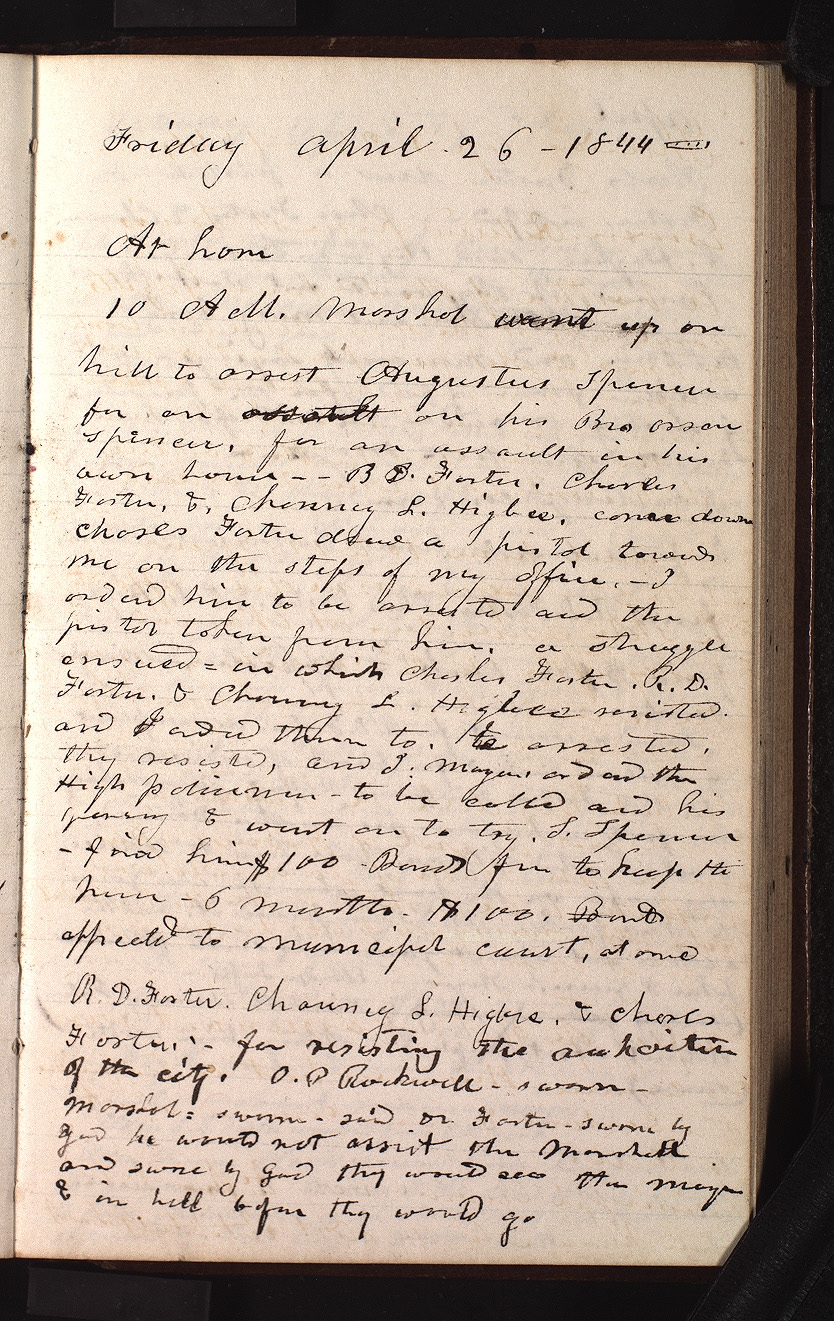 Friday April 26 - 1844
At home
10 A M. Marshal went up on
hill to arrest Augustus Spencer
for an assault on his Bro orson
Spencer. for an assault in his
own house -- R D. Foster. Charles
Foster, &. Chauncy L. Higbee. come down
charles Foster drew a pistol towards
me on the steps of my office. - I
orderd him to be arrested and the
pistol taken from him. a struggle
ensued = in which Charles Foster. R. D.
Foster. & Chauncy L. Higbee resisted.
and I orded them to. be arrested.
they resisted, and I. Mayor. ordered the
High policeman - to be called and his
& went on to try. Spencer
- fined him $100 - Bonds to keep the
peace - 6 months. $100. Bonds
appealed to municipal court, at once
R. D. Foster. Chauncy L. Higbee. & charles
Foster. - for resisting the authorities
of the city. O. P Rockwell - sworn -
Marshal = sworn - said Dr Foster - swore by
god he would not assist the Marshall
and swore by god they would see the mayor
& in hell before they would go